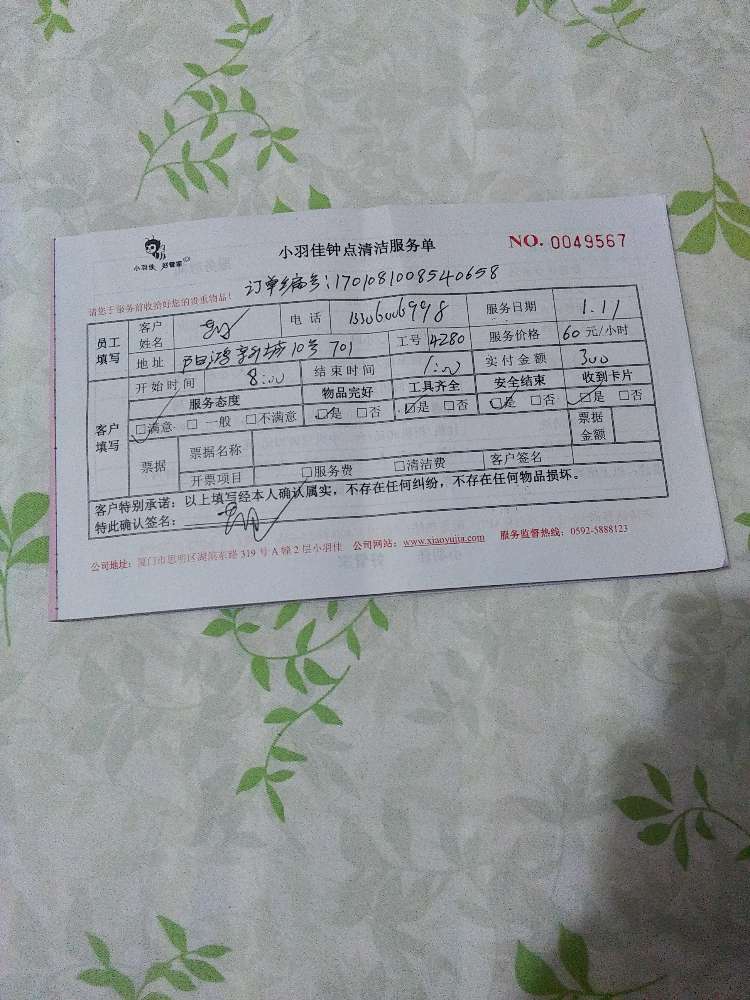 小羽佳 好管家
小羽佳钟点清洁服务单
NO. 0049567
请您于服务前收拾好您的贵重物品!
订单编号:1701081008540658
员工填写 客户姓名 电话 13306006998 服务日期 1.11
地址 阳鸿新城10号701 工号 4280 服务价格 60元/小时
客户填写 开始时间 8:00 结束时间 1:00 实付金额 300
服务态度 物品完好 工具齐全 安全结束 收到卡片
☑满意 □一般 □不满意 ☑是 □否 ☑是 □否 ☑是 □否 ☑是 □否
票据 票据名称 票据金额
开票项目 □服务费 □清洁费 客户签名
客户特别承诺:以上填写经本人确认属实,不存在任何纠纷,不存在任何物品损坏。
特此确认签名:
公司地址:厦门市思明区湖滨东路 319 号 A 幢 2 层小羽佳 公司网站:www.xiaoyujia.com 服务监督热线:0592-5888123